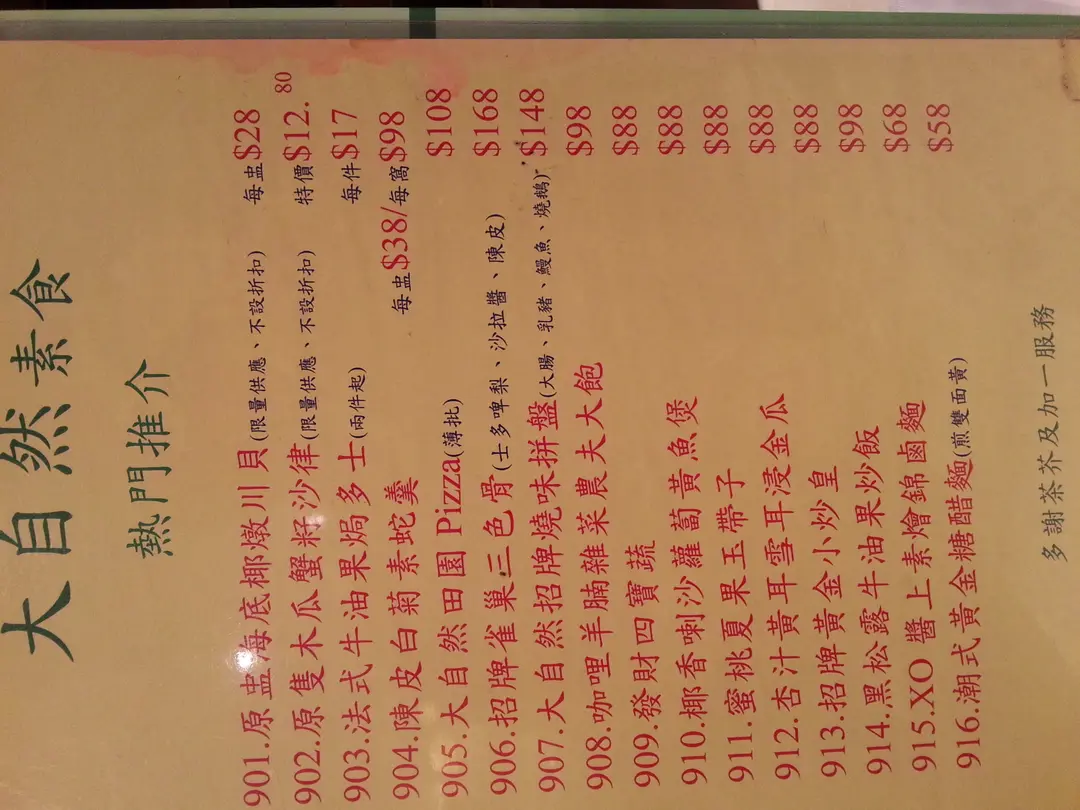 大自然素食
熱門推介
901.原盅海底椰燉川貝(限量供應、不設折扣) 每盅$28
902.原隻木瓜蟹籽沙律(限量供應、不設折扣) 特價$12.80
903.法式牛油果焗多士(兩件起) 每件$17
904.陳皮白菊素蛇羹 每盅$38/每窩$98
905.大自然田園Pizza(薄批) $108
906.招牌雀巢三色骨(士多啤梨、沙拉醬、陳皮) $168
907.大自然招牌燒味拼盤(大腸、乳豬、鰻魚、燒鵝) $148
908.咖哩羊腩雜菜農夫大飽 $98
909.發財四寶蔬 $88
910.椰香喇沙蘿蔔黃魚煲 $88
911.蜜桃夏果玉帶子 $88
912.杏汁黃耳雪耳浸金瓜 $88
913.招牌黃金小炒皇 $88
914.黑松露牛油果炒飯 $98
915.XO醬上素燴錦鹵麵 $68
916.潮式黃金糖醋麵(煎雙面黃) $58
多謝茶芥及加一服務